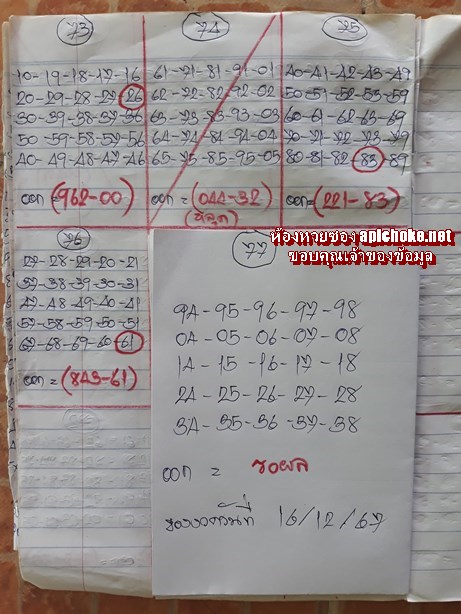 73
10-19-18-17-16
20-29-28-27-26
30-39-38-37-36
50-59-58-57-56
40-49-48-47-46
ออก=(962-00)
74
61-71-81-91-01
62-72-82-92-02
63-73-83-93-03
64-74-84-94-04
65-75-85-95-05
ออก=(044-32)
75
40-41-42-43-49
50-51-52-53-59
60-61-62-63-69
70-71-72-73-79
80-81-82-83-89
ออก=(221-83)
ห้องหวยซอง apichoke.net
ขอบคุณเจ้าของข้อมูล
76
27-28-29-20-21
37-38-39-30-31
47-48-49-40-41
57-58-59-50-51
67-68-69-60-61
ออก=(843-61)
77
94-95-96-97-98
04-05-06-07-08
14-15-16-17-18
24-25-26-27-28
34-35-36-37-38
ออก = รอผล
ของงวดวันที่ 16/12/67